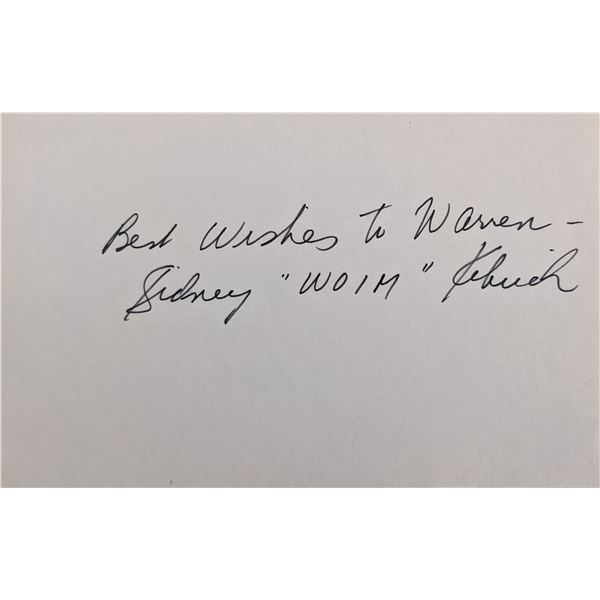 Best Wishes to Warren -
Sidney "WOIM" Kibrick